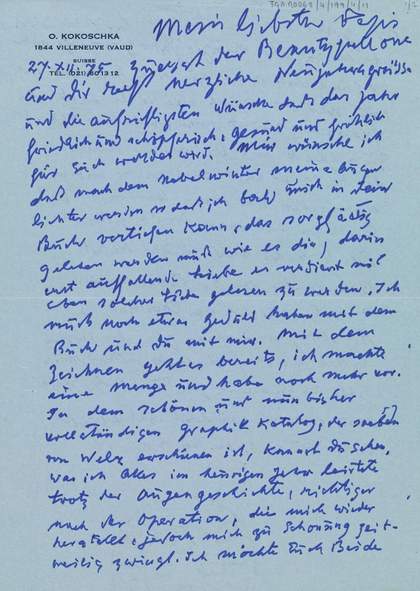 TGA 20069/4/199/4/11 1/2
O. KOKOSCHKA
1844 VILLENEUVE (VAUD)
SUISSE
TÉL. (021) 60 13 12
27. XII. 75
Mein liebster
zuerst der
und Dir herzliche Neujahrsgrüsse
und die aufrichtigsten Wünsche dass das Jahr
friedlich und schöpferisch, gesund und fröhlich
für Euch werden wird. Mir wünsche ich
daß nach dem Nebelwinter meine Augen
lichter werden so daß ich bald mich in Dein
Buch vertiefen kann, das sorgfältig
gelesen werden muß wie es die, darin
erst auffallende Liebe es verdient mit
eben solcher Liebe gelesen zu werden. Ich
muß noch etwas Geduld haben mit dem
Buch und Du mit mir. Mit dem
Zeichnen geht es bereits, ich machte
eine Menge und habe noch mehr vor.
In dem schönen und nun bisher
vollständigen Graphik Katalog, der soeben
von Welz erschienen ist, kannst Du sehen,
was ich Alles im heurigen Jahr leistete
trotz der Augengeschichte, richtiger
nach der Operation, die mich wieder
herstellte jedoch mich zu Schonung zeit-
weilig zwingt. Ich möchte Euch Beide